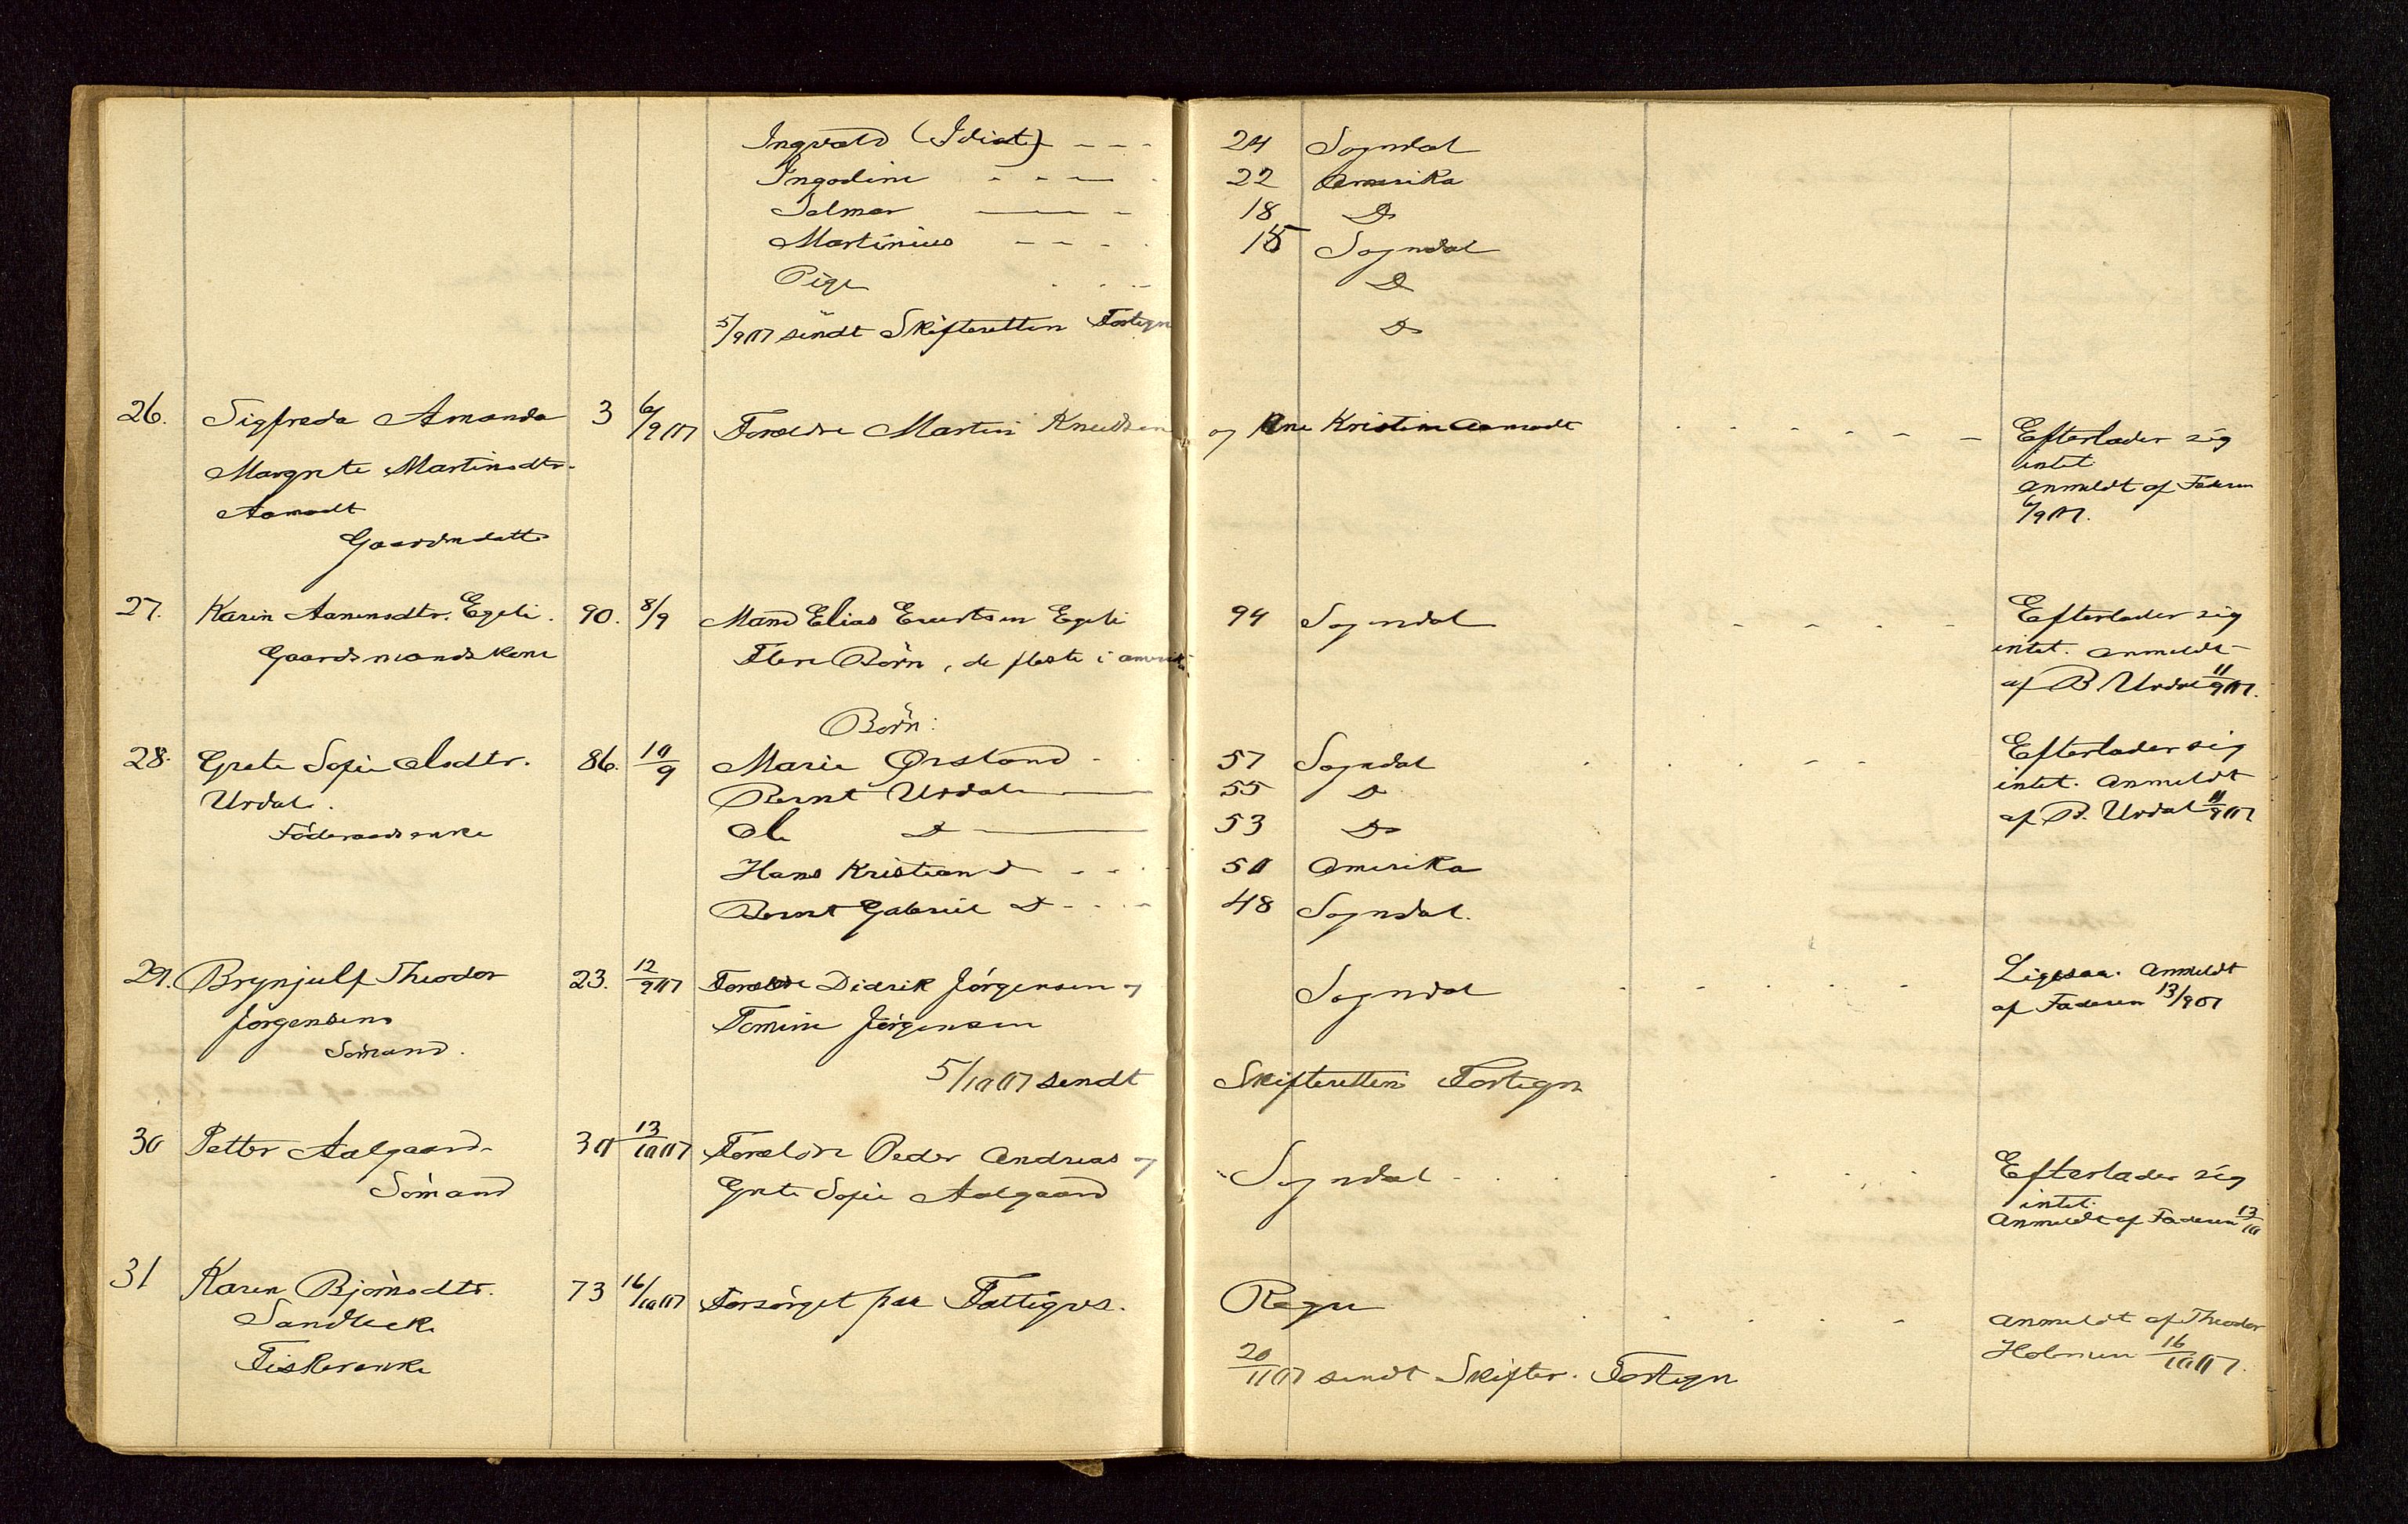 Ingvald (Idiot) - - - 24 Sogndal
Ingodine - - - 22 Amerika
Salmer - - 18 Do
Martinius - - - 15 Sogndal
Pige - - - Do
5/9 07 sendt Skifteretten Fortegn Do
26. Sigfreda Amanda 3 6/9 07 Forældre Martin Knudsen og Ane Kristine Aamodt - - - - - Efterlader sig
Margrete Martinsdtr. intet
Aamodt Anmeldt af Faderen
Gaardmdatter 6/9 07.
27. Karen Aanensdtr. Egeli. 90. 8/9 Mand Elias Evertsen Egeli 94 Sogndal - - - - Efterlader sig
Gaardsmandskone Flere Börn, de fleste i Amerika intet. Anmeldt
af B Urdal 11/9 07.
Börn:
28. Grete Sofie Olsdtr. 86. 10/9 Marie Ørsland - 57 Sogndal - - - - Efterlader sig
Urdal. Bernt Urdal 55 Do intet. Anmeldt
Föderaadsenke Ole Do 53 Do af B. Urdal 11/9 07
Hans Kristian Do - - 50 Amerika
Bernt Gabriel Do - - - 48 Sogndal.
29. Brynjulf Theodor 23. 12/9 07 Forældre Didrik Jörgensen og Sogndal - - - - Ligesaa. Anmeldt
Jörgensens Tomine Jörgensen af Faderen 13/9 07
Sömand.
5/10 07 sendt Skifteretten Fortegn
30 Petter Aalgaard 30 13/10 07 Forældre Peder Andreas og Sogndal - - - - Efterlader sig
Sömand Grete Sofie Aalgaard intet.
Anmeldt af Faderen 13/10
31 Karen Björnsdtr. 73 16/10 07 Forsörget paa Fattigves. Regn - - - - -
Sandbek Anmeldt af Theodor
Fiskerenke Holmen 16/10 07.
20/11 07 sendt Skifter. Fortegn